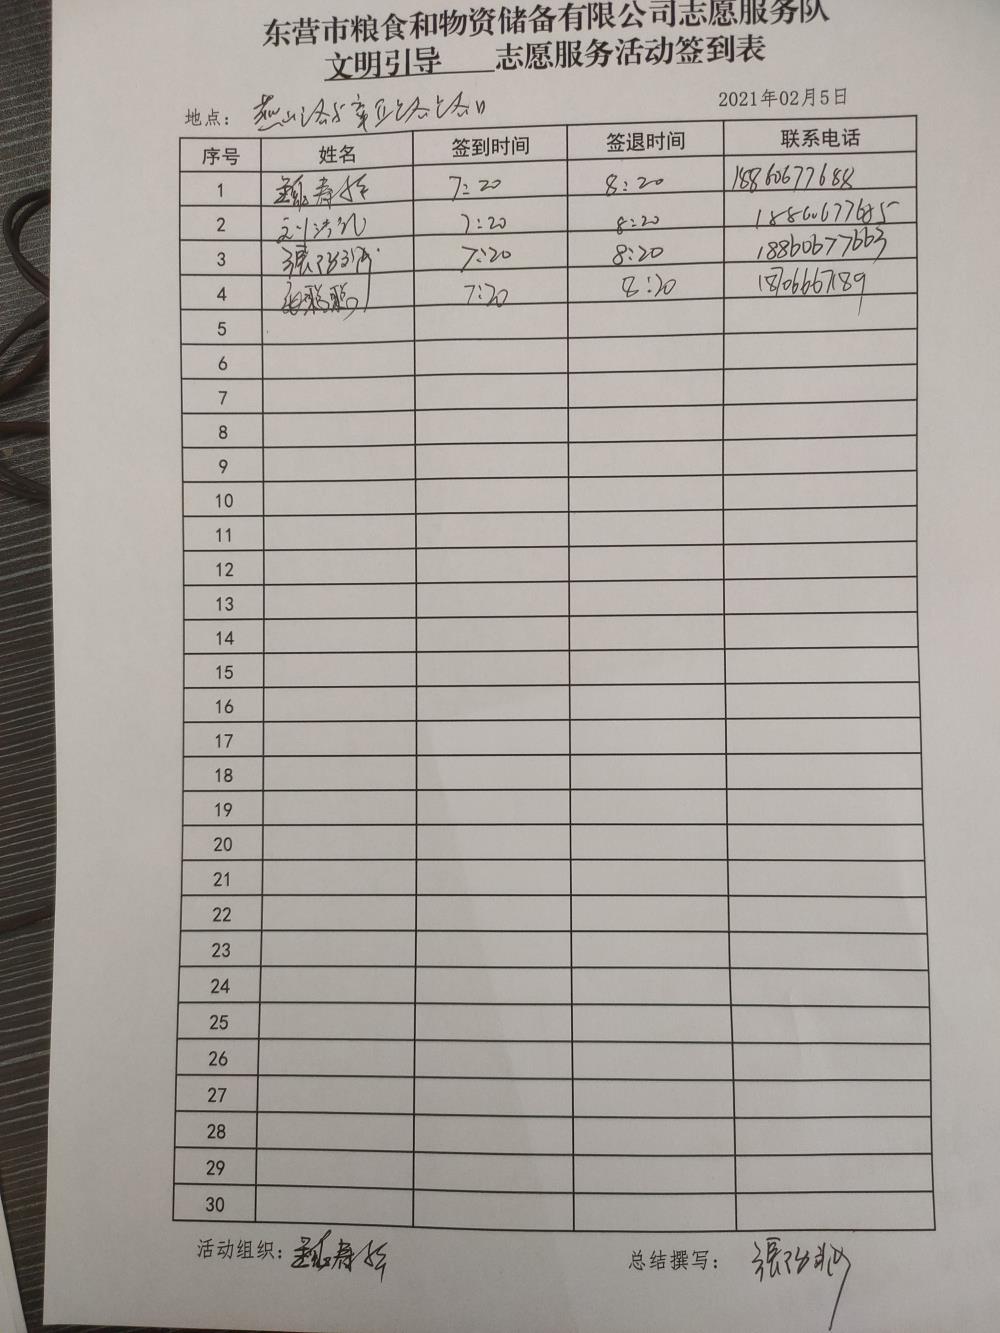 东营市粮食和物资储备有限公司志愿服务队
文明引导 志愿服务活动签到表
地点：
2021年02月5日
序号 姓名 签到时间 签退时间 联系电话
1 7:20 8:20 18860677688
2 7:20 8:20 18860677685
3 7:20 8:20 18860677663
4 7:20 8:20 18706667189
5
6
7
8
9
10
11
12
13
14
15
16
17
18
19
20
21
22
23
24
25
26
27
28
29
30
活动组织： 总结撰写：